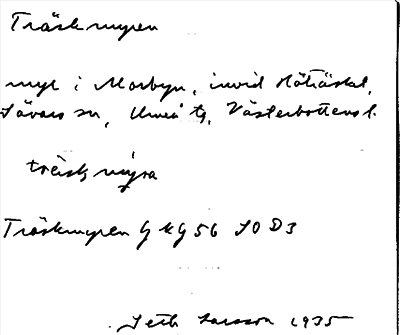 Träskmyren
myr i Morbyn, invid Nöträsket,
Sävars sn, Umeå tg, Västerbottens l.
Träskmyren G KG 56 10 D3
Seth Larsson 1935